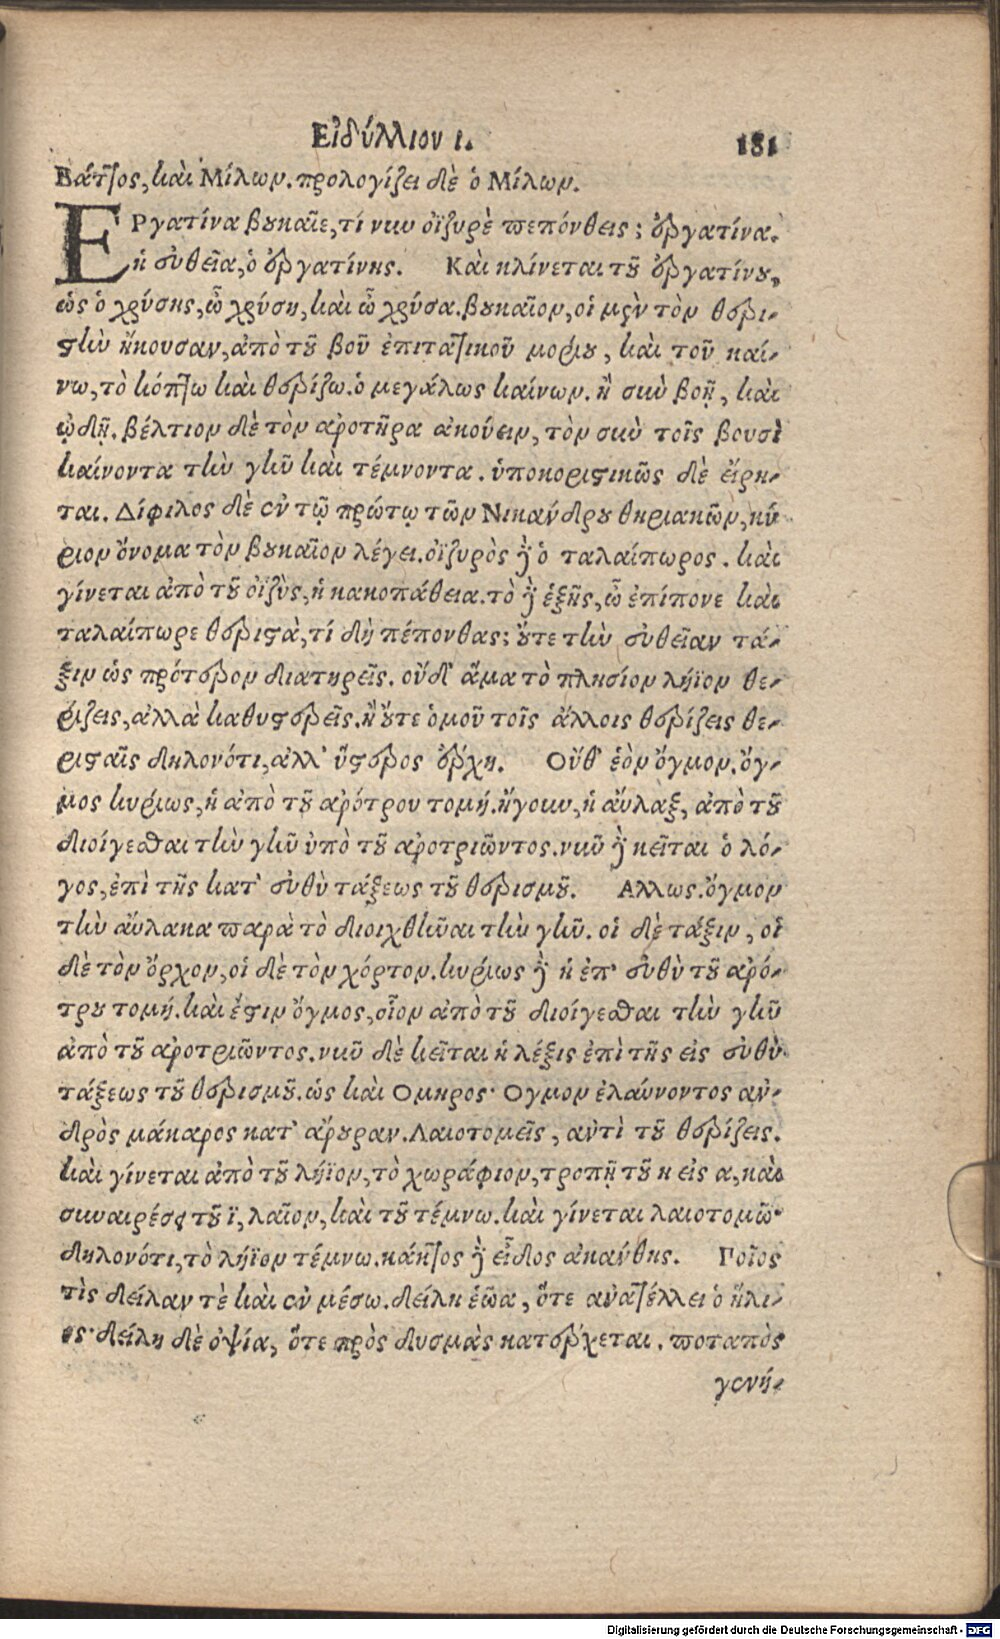 Εἰδύλλιον ι. 181
Βάττος, καὶ Μίλων. προλογίζει δὲ ὁ Μίλων.
ΕΡγατίνα βουκαῖε, τί νυν οἰζυρὲ πεπόνθεις; ἐργατίνα.
ἡ εὐθεῖα, ὁ ἐργατίνης. Καὶ κλίνεται τοῦ ἐργατίνου,
ὡς ὁ χρύσης, ὦ χρύση, καὶ ὦ χρύσα. βουκαῖον, οἱ μὲν τὸν θερι-
στὴν ἤκουσαν, ἀπὸ τοῦ βοῦ ἐπιτατικοῦ μορίου, καὶ τοῦ καί-
νω, τὸ κόπτω καὶ θερίζω. ὁ μεγάλως καίνων. ἢ σὺν βοῇ, καὶ
ᾠδῇ. βέλτιον δὲ τὸν ἀροτῆρα ἀκούειν, τὸν σὺν τοῖς βουσὶ
καίνοντα τὴν γῆν καὶ τέμνοντα. ὑποκοριστικῶς δὲ εἴρη-
ται. Δίφιλος δὲ ἐν τῷ πρώτῳ τῶν Νικάνδρου θηριακῶν, κύ-
ριον ὄνομα τὸν βουκαῖον λέγει. οἰζυρὸς δὲ ὁ ταλαίπωρος. καὶ
γίνεται ἀπὸ τοῦ οἰζὺς, ἡ κακοπάθεια. τὸ δὲ ἑξῆς, ὦ ἐπίπονε καὶ
ταλαίπωρε θεριστὰ, τί δὴ πέπονθας; οὔτε τὴν εὐθεῖαν τά-
ξιν ὡς πρότερον διατηρεῖς. οὐδ' ἅμα τὸ πλησίον λήϊον θε-
ρίζεις, ἀλλὰ καθυστερεῖς. ἢ οὔτε ὁμοῦ τοῖς ἄλλοις θερίζεις θε-
ρισταῖς δηλονότι, ἀλλ' ὕστερος ἔρχη. Οὔθ' ἑὸν ὄγμον. ὄγ-
μος κυρίως, ἡ ἀπὸ τοῦ ἀρότρου τομή. ἤγουν, ἡ αὔλαξ, ἀπὸ τοῦ
διοίγεσθαι τὴν γῆν ὑπὸ τοῦ ἀροτριῶντος. νῦν δὲ κεῖται ὁ λό-
γος, ἐπὶ τῆς κατ' εὐθὺ τάξεως τοῦ θερισμοῦ. Αλλως. ὄγμον
τὴν αὔλακα παρὰ τὸ διοιχθῆναι τὴν γῆν. οἱ δὲ τάξιν, οἱ
δὲ τὸν ὄρχον, οἱ δὲ τὸν χόρτον. κυρίως δὲ ἡ ἐπ' εὐθὺ τοῦ ἀρό-
τρου τομή. καὶ ἔστιν ὄγμος, οἷον ἀπὸ τοῦ διοίγεσθαι τὴν γῆν
ἀπὸ τοῦ ἀροτριῶντος. νῦν δὲ κεῖται ἡ λέξις ἐπὶ τῆς εἰς εὐθὺ
τάξεως τοῦ θερισμοῦ. ὡς καὶ Ομηρος· Ογμον ἐλαύνοντος ἀν-
δρὸς μάκαρος κατ' ἄρουραν. Λαιοτομεῖς, ἀντὶ τοῦ θερίζεις.
καὶ γίνεται ἀπὸ τοῦ λήϊον, τὸ χωράφιον, τροπῇ τοῦ η εἰς α, καὶ
συναιρέσει τοῦ ϊ, λαῖον, καὶ τοῦ τέμνω. καὶ γίνεται λαιοτομῶ·
δηλονότι, τὸ λήϊον τέμνω. κάκτος δὲ εἶδος ἀκάνθης. Ποῖος
τὶς δείλαν τὲ καὶ ἐν μέσω. δείλη ἑῶα, ὅτε ἀνατέλλει ὁ ἥλι-
ος· δείλη δὲ ὀψία, ὅτε πρὸς δυσμὰς κατέρχεται. ποταπὸς
γενή-
Digitalisierung gefördert durch die Deutsche Forschungsgemeinschaft - DFG